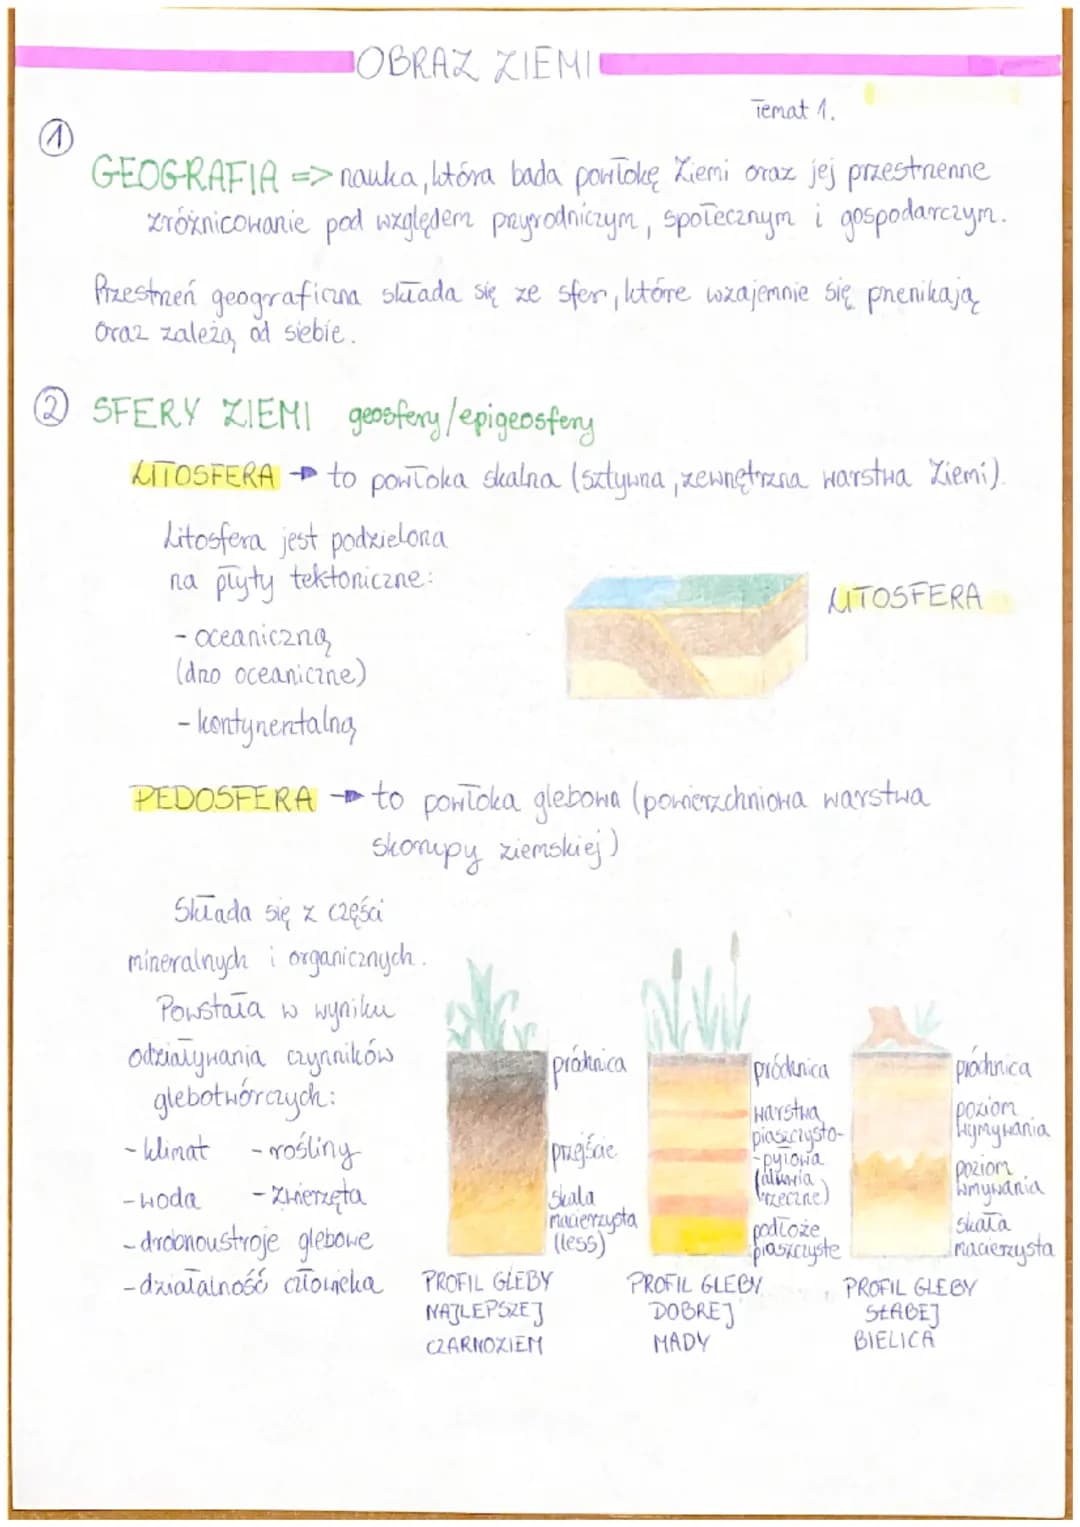 OBRAZ ZIEMI
Temat 1.
1
GEOGRAFIA => nauka, która bada powłokę Ziemi oraz jej przestrzenne
zróżnicowanie pod względem przyrodniczym, społecznym i gospodarczym.
Przestrzeń geograficzna składa się ze sfer, które wzajemnie się przenikają
oraz zależą od siebie.
2 SFERY ZIEMI geosfery/epigeosfery
LITOSFERA → to powłoka skalna (sztywna, zewnętrzna warstwa Ziemi).
Litosfera jest podzielona
na płyty tektoniczne:
- oceaniczną
(dno oceaniczne)
- kontynentalną
LITOSFERA
PEDOSFERA → to powłoka glebowa (powierzchniowa warstwa
skorupy ziemskiej)
Składa się z części
mineralnych i organicznych.
Powstała w wyniku
odziaływania czynników
glebotwórczych:
- klimat - rośliny
- woda - zwierzęta
- drobnoustroje glebowe
- działalność człowieka
próchnica
przejście
skała
macierzysta
(less)
PROFIL GLEBY
NAJLEPSZEJ
CZARNOZIEM
próchnica
warstwa
piaszczysto-
-pyłowa
(aluwia
rzeczne)
podłoże
piaszczyste
PROFIL GLEBY
DOBREJ
MADY
próchnica
poziom
wymywania
poziom
wmywania
skała
macierzysta
PROFIL GLEBY
SŁABEJ
BIELICA